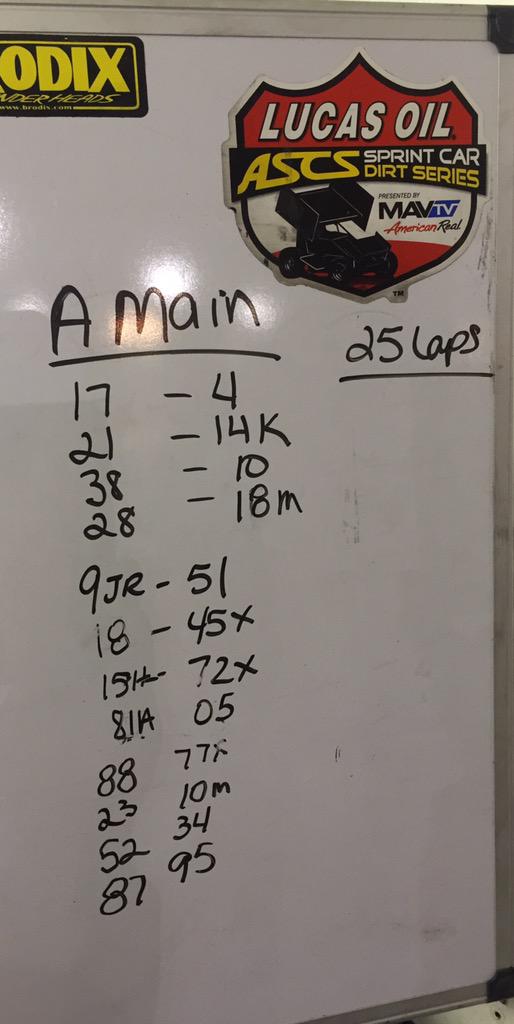 ODIX
NDER HEADS
www.brodix.com
LUCAS OIL
ASCS SPRINT CAR DIRT SERIES
PRESENTED BY
MAVTV
American Real
TM
A Main
25 Laps
17 - 4
21 - 14K
38 - 10
28 - 18m
9JR - 51
18 - 45x
15H - 72x
81A 05
88 77x
23 10m
52 34
87 95